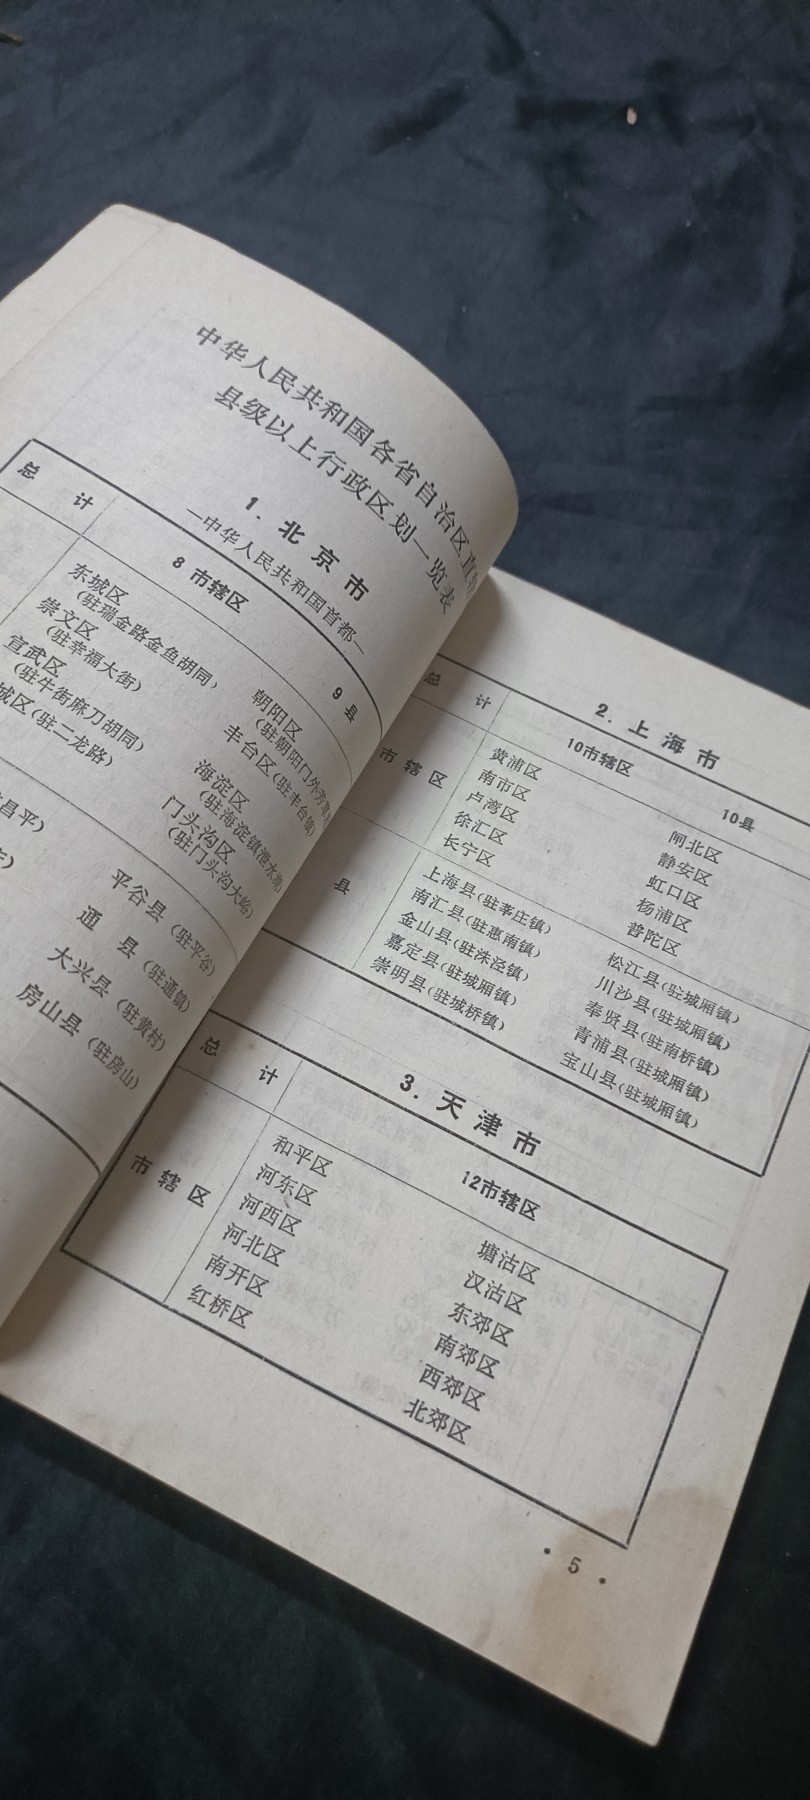 中华人民共和国各省自治区直
县级以上行政区划一览表
1. 北京市
—中华人民共和国首都—
总计
8 市辖区
9 县
东城区
(驻瑞金路金鱼胡同)
崇文区
(驻幸福大街)
宣武区
(驻牛街麻刀胡同)
城区(驻二龙路)
朝阳区
(驻朝阳门外芳
丰台区(驻丰台镇)
海淀区
(驻海淀镇泄水湖)
门头沟区
(驻门头沟大峪)
昌平)
平谷县(驻平谷)
通县(驻通镇)
大兴县(驻黄村)
房山县(驻房山)
2. 上海市
总计
10市辖区
10县
市辖区
黄浦区
南市区
卢湾区
徐汇区
长宁区
闸北区
静安区
虹口区
杨浦区
普陀区
县
上海县(驻莘庄镇)
南汇县(驻惠南镇)
金山县(驻洙泾镇)
嘉定县(驻城厢镇)
崇明县(驻城桥镇)
松江县(驻城厢镇)
川沙县(驻城厢镇)
奉贤县(驻南桥镇)
青浦县(驻城厢镇)
宝山县(驻城厢镇)
3. 天津市
总计
12市辖区
市辖区
和平区
河东区
河西区
河北区
南开区
红桥区
塘沽区
汉沽区
东郊区
南郊区
西郊区
北郊区
• 5 •